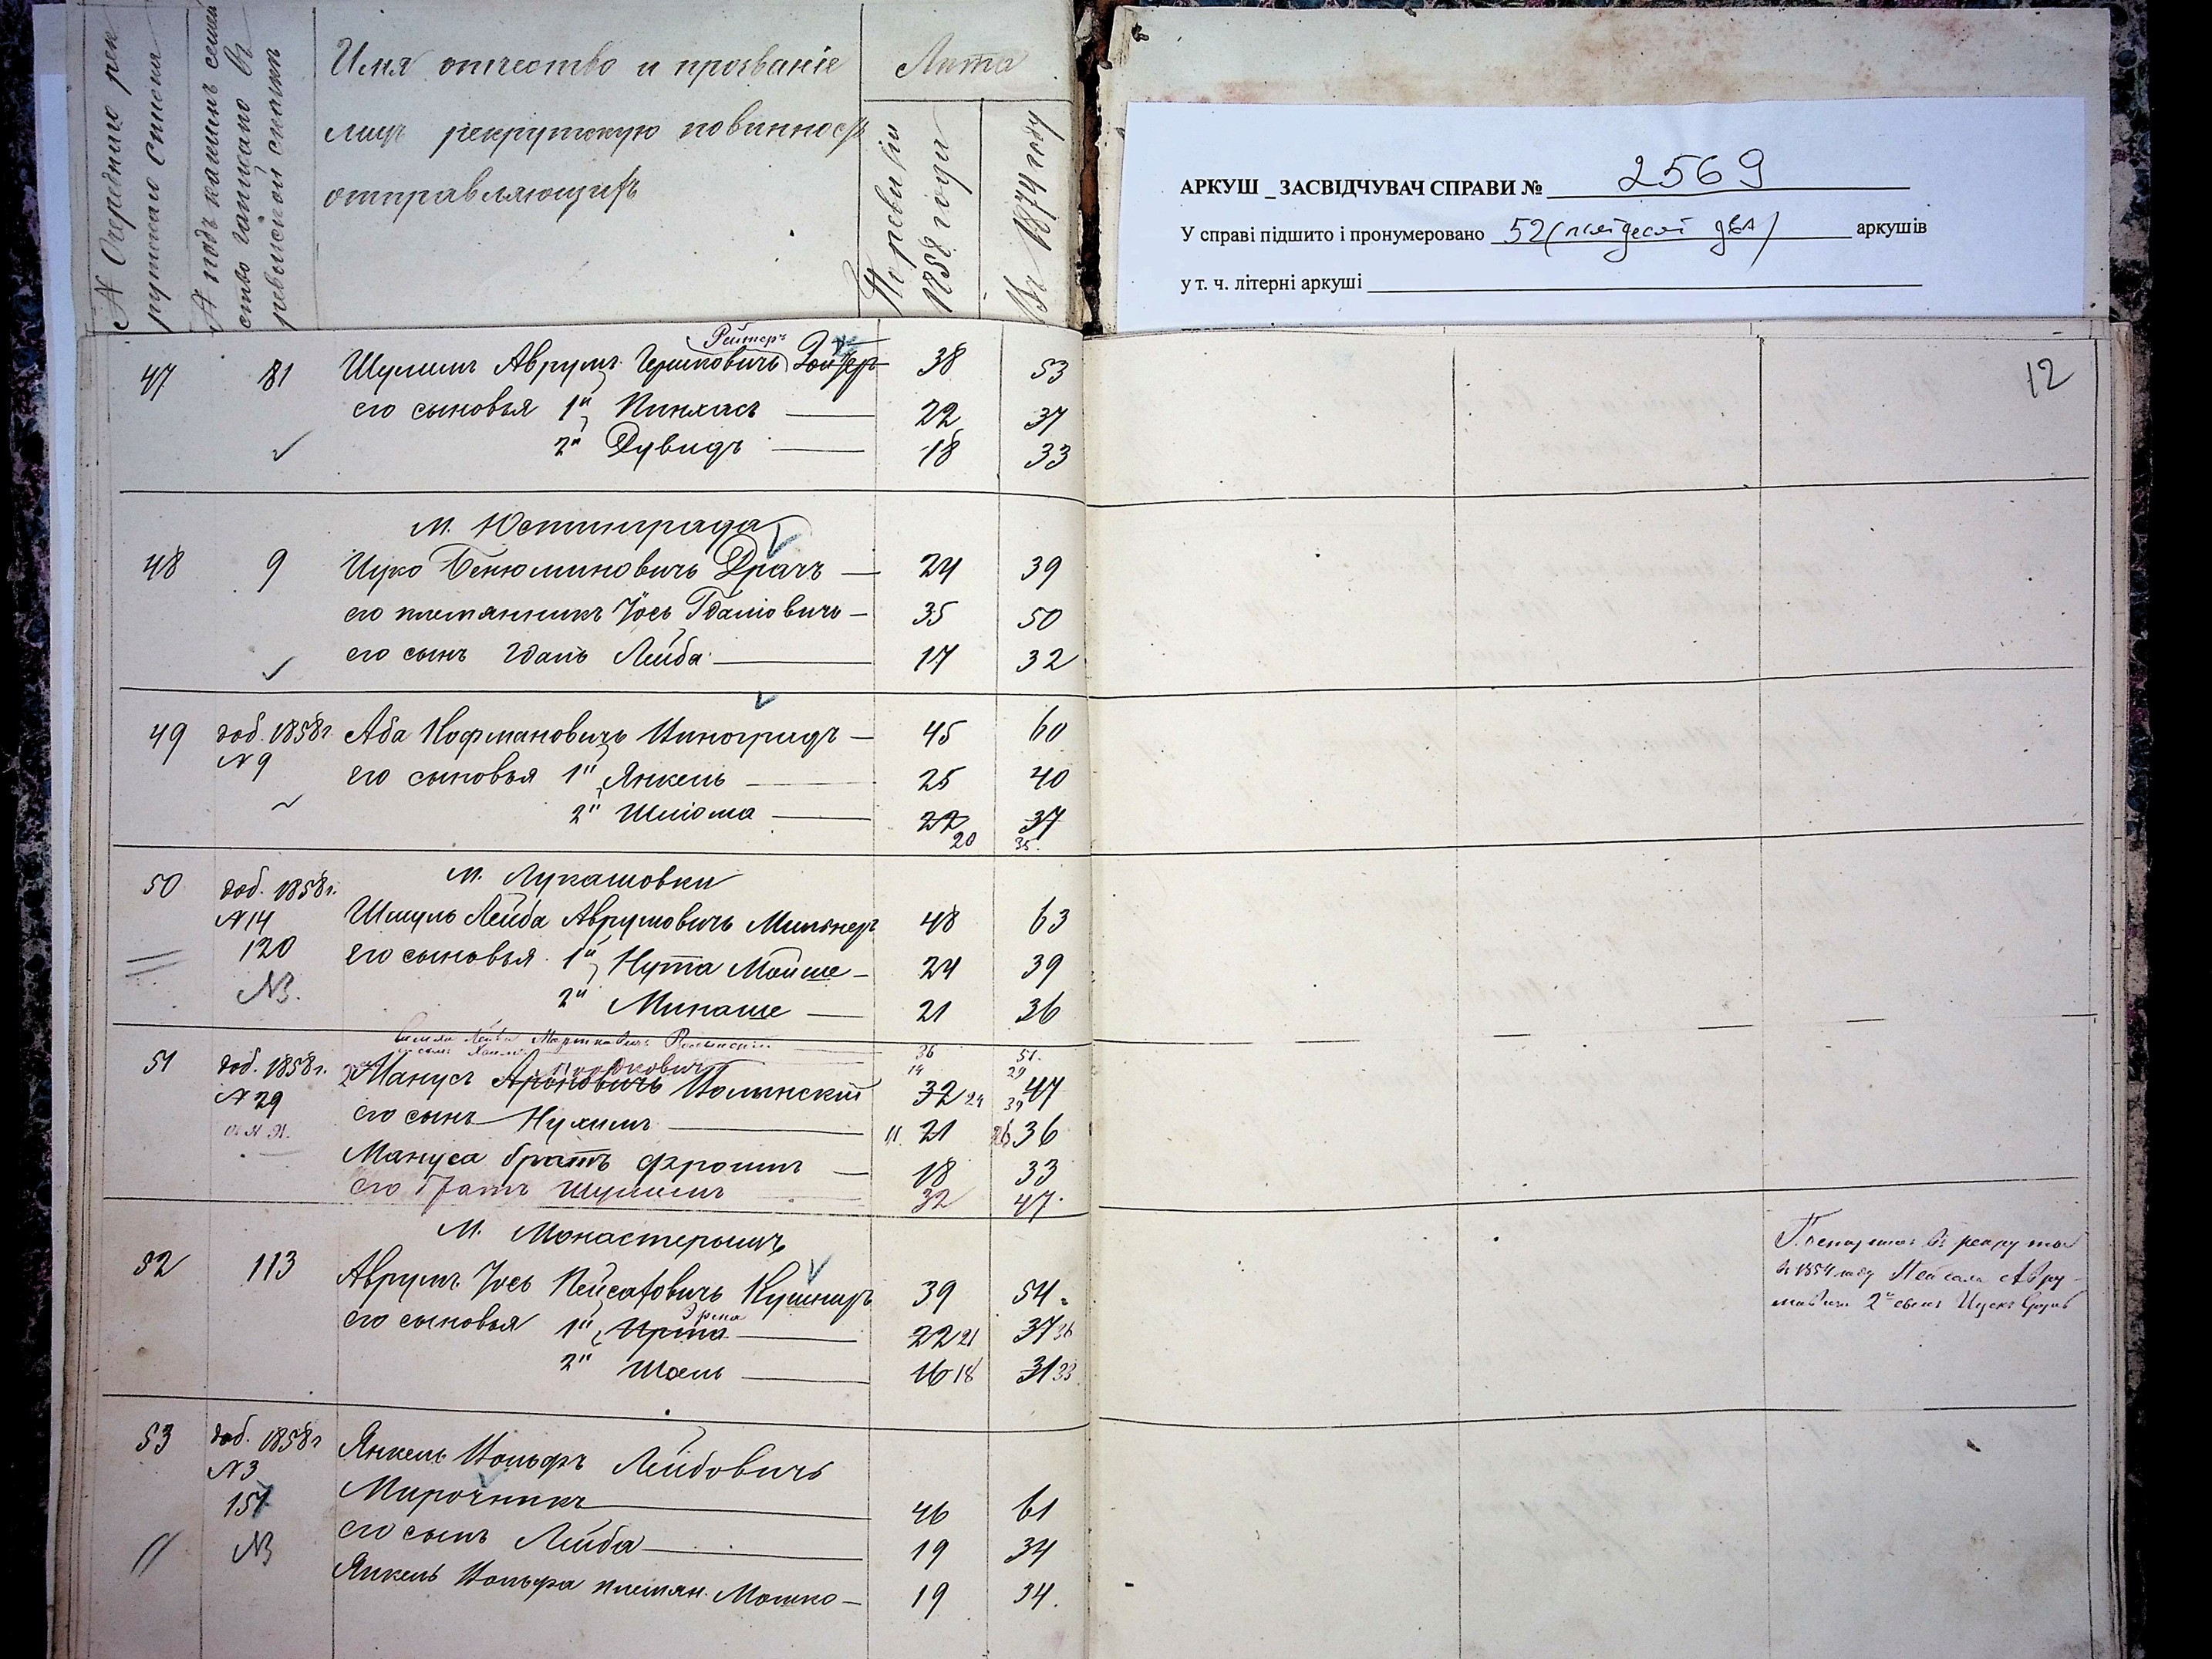 № Очередного рек
рутскаго списка
№ подъ какимъ семей
ство записано въ
ревизской сказкѣ
Имя отчество и прозваніе
лицъ рекрутскую повинность
отправляющихъ
Лѣта
По ревизіи
1858 года
Въ 1874 году
АРКУШ _ ЗАСВІДЧУВАЧ СПРАВИ № 2569
У справі підшито і пронумеровано 52 (пятдесят два) аркушів
у т. ч. літерні аркуші
12
Рейтеръ
47 81 Шулимъ Аврумъ Гершковичъ 38 53
его сыновья 1й Пинхасъ 22 37
2й Дувидъ 18 33
м. Юстинграда
48 9 Ицко Бенюминовичъ Драчъ 24 39
его племянникъ Іось Гдаліовичъ 35 50
его сынъ Гдаль Лейба 17 32
49 доб. 1858 г. Аба Кофмановичъ Виноградъ 45 60
№ 9 его сыновья 1й Янкель 25 40
2й Шліома 22 37
20 35.
50 доб. 1858 г. м. Лукашовки
№ 14 Шмуль Лейба Аврумовичъ Мильнеръ 48 63
120 его сыновья 1й Нута Мойше 24 39
№3. 2й Минаше 21 36
Лейба Маркковичъ Волынскій 36 51.
сынъ Хаимъ 14 29
51 доб. 1858 г. Манусъ Ароновичъ Волынскій 32 24 39 47
№ 29 его сынъ Нухимъ 11. 21 26 36
Мануса братъ Фроимъ 18 33
его братъ Шулимъ 32 47.
м. Монастерищъ
52 113 Аврумъ Іось Пейсаховичъ Кушниръ 39 54
его сыновья 1й Ирта 22 21 37 36
2й Шоель 16 18 31 33
въ рекруты
въ 1854 году Пейсаха Авру
мовича 2й сынъ Ицекъ
53 доб. 1858 г. Янкель Вольфъ Лейбовичъ
№ 3 Мирочникъ 46 61
151
его сынъ Лейба 19 34
№3 Янкель Вольфа племян. Мошко 19 34.